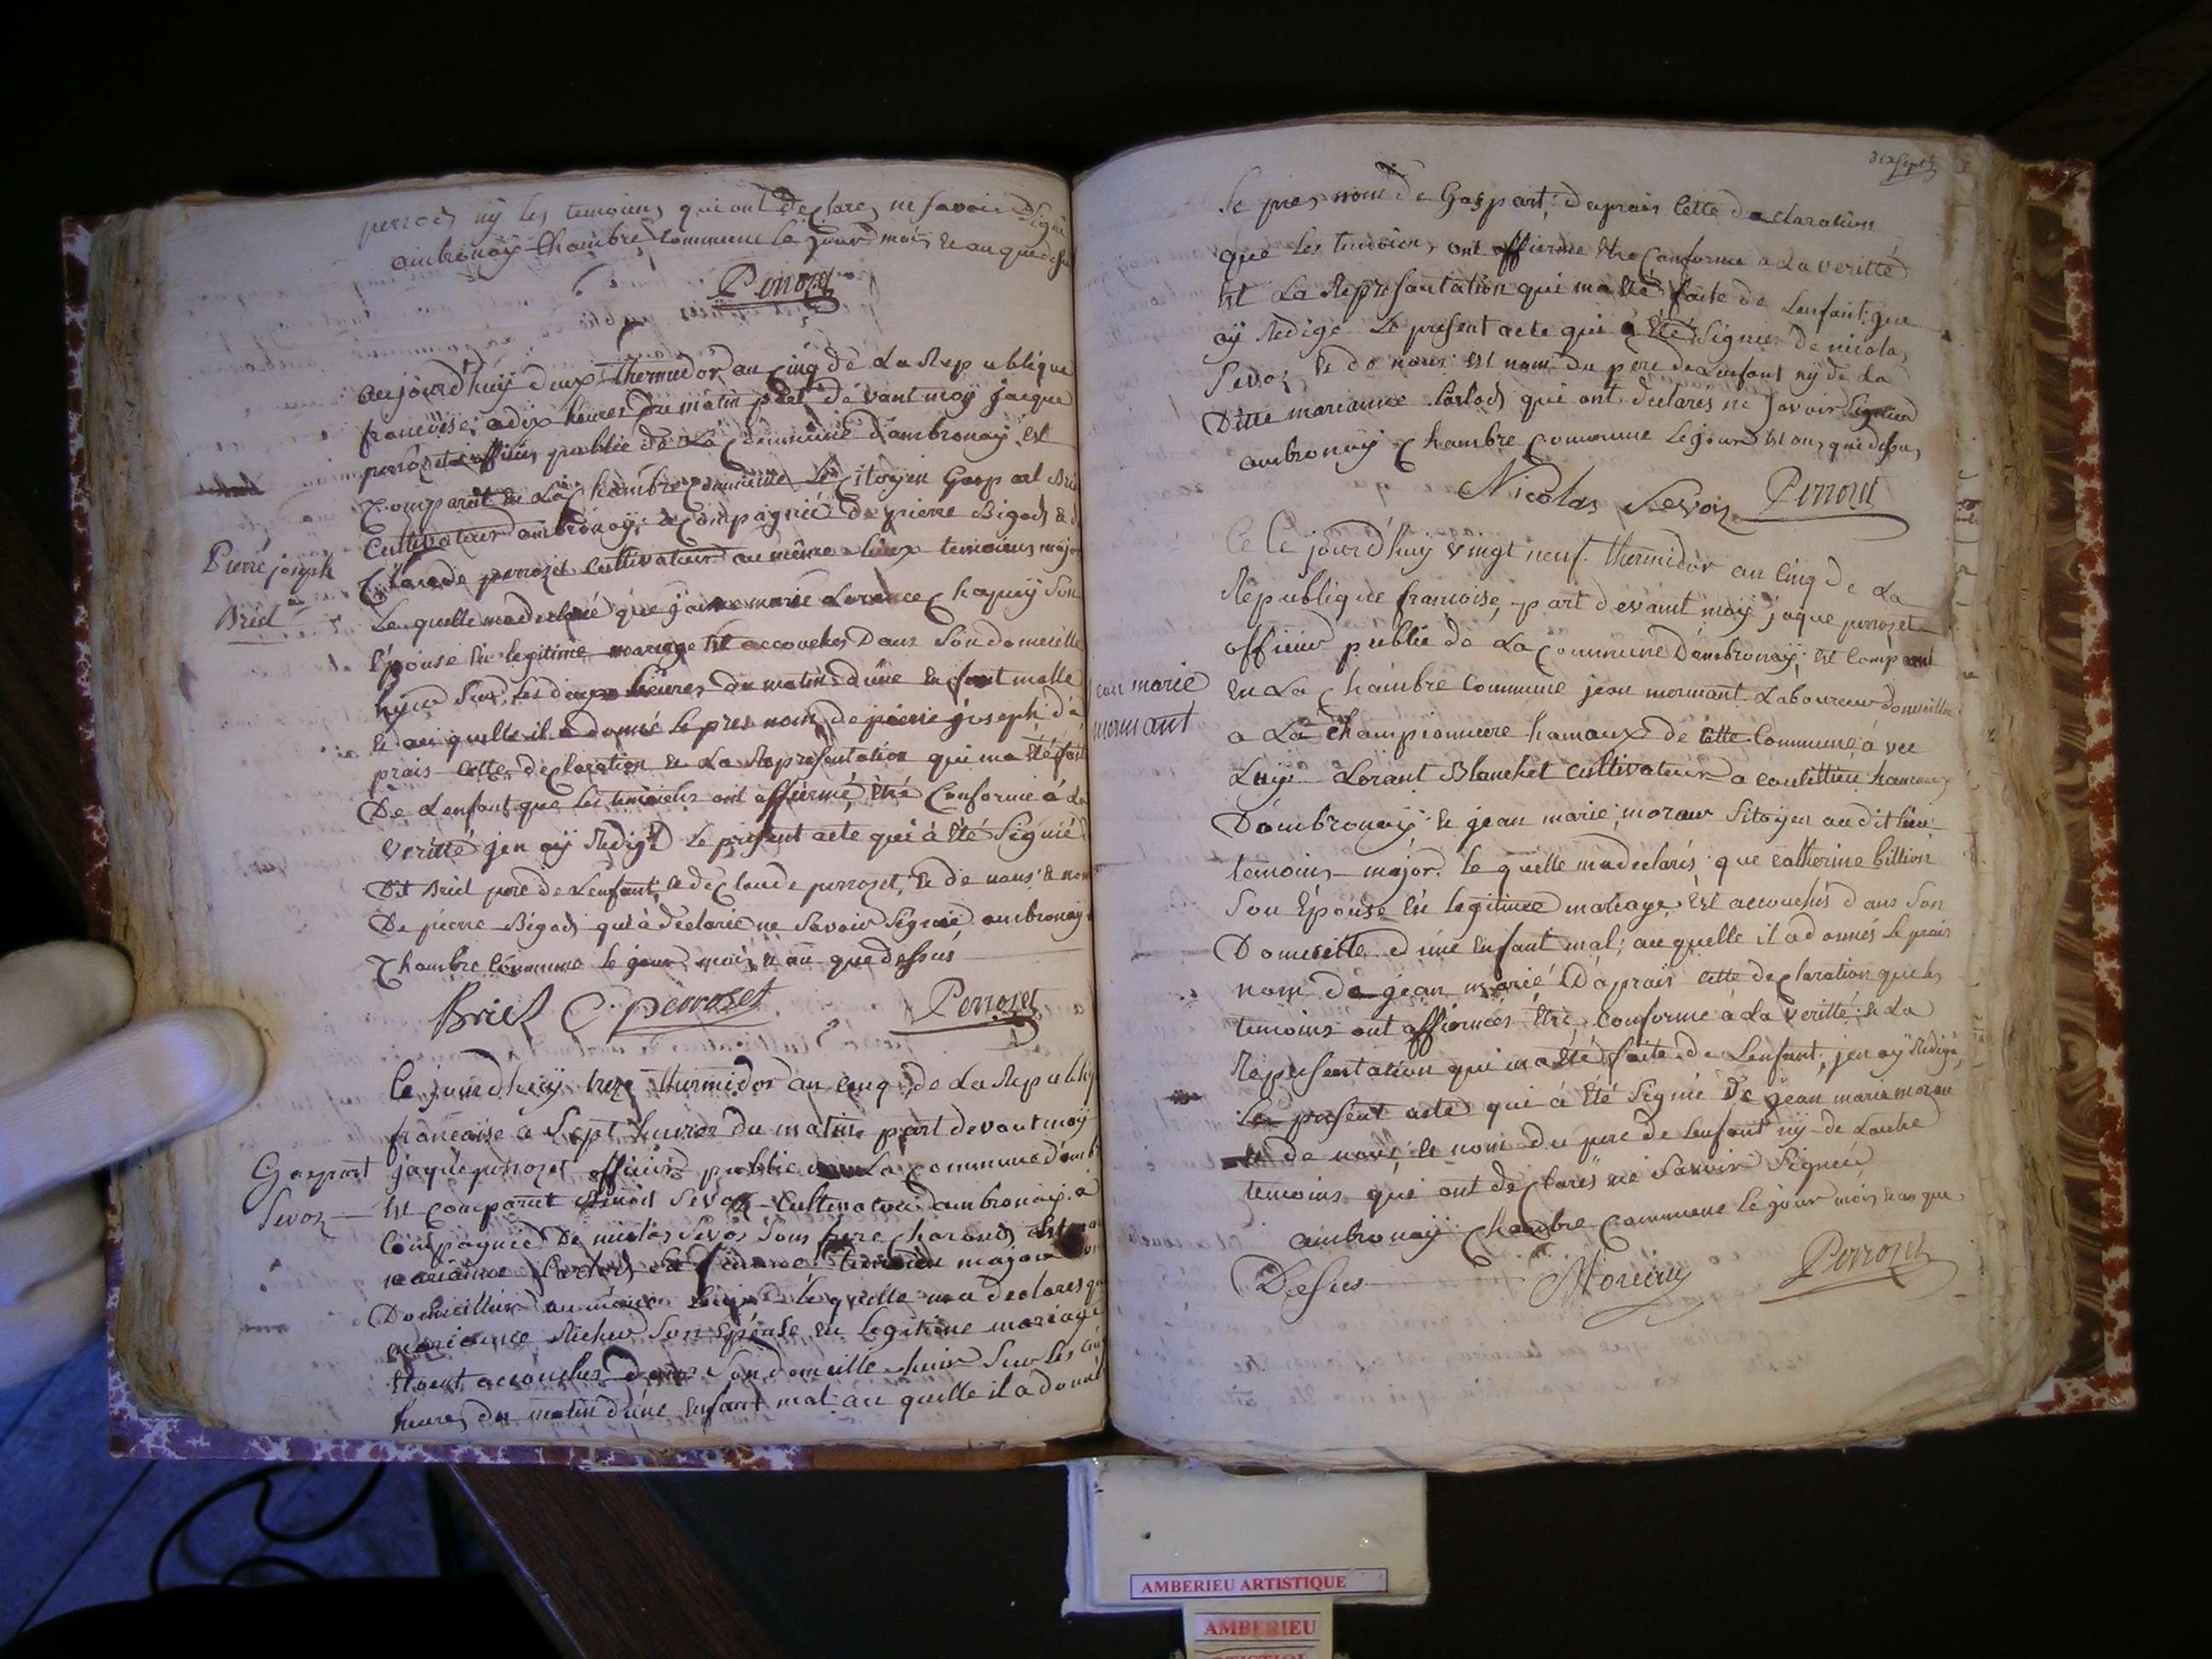 ny les temoiens qui ont declares ne savoir Signé
ambronay Chambre Commune le jour mois & an que desu
Perrozet
aujourd'huÿ deux thermidor an cinq de La Republique
francoise, a dix heures du matin part devant moÿ jacque
perrozet officier public de La Commune d'ambronaÿ est
Comparut en La Chambre Commune Le Citoyen Gaspart Briel
Cultivateur ambronaÿ, acompagnié de pierre Bigods & de
Claude perrozet cultivateur au même lieux temoiens major
Le quelle ma declaré que marie Lorance Son
Épouse en legitime mariage est accouchés Dans Son domicille
hyer Sur les heures du matin d'une enfant malle
& au quelle il a donné le pres nom de pierre joseph d'a
prais cette declaration & La Representation qui ma été faite
De L'enfant que les temoiens ont affirmé être Conforme á La
Veritté jen aÿ Redigé Le present acte qui à Été Signié
Dit Briel pere de L'enfant, & de Claude perrozet, & de nous & non
De pierre Bigods qui à declaré ne Savoir Signié ambronaÿ
Chambre Commune le jour mois & an que dessus
Pierre joseph
Briel
Briel C. perrozet Perrozet
Ce jourd'huÿ treze thermidor an cinq de La Republiq
francoise a Sept heures du matin part devant moÿ
jaque perrozet officier public La Commune d'amb
Est Comparut Sevoz Cultivateur ambronaÿ a
Compagnié De nicolas Sevoz Sons frere
marianne Sa femme temoien major
Domicillier au même Lieux le quelle ma declares que
marianne Son Épouse en legitime mariage
Etoent accouches dans Son domicille hier Sur les cinq
heures du matin d'une Enfant mal au quelle il a donné
Gaspart
Sevoz
dix sept
Le pres nom de Gaspart; daprais Cette declaration
que les temoiens ont affierme Etre Conforme a La veritté
Est La Representation qui ma Eté faite de Lenfant jen
aÿ Redigé Le present acte qui à Eté Signier de nicolas
Sevoz & de nous est nom du pere de Lenfant nÿ de La
Ditte marianne qui ont declares ne Savoir Signier
ambronaÿ Chambre Commune Le jour est an que desus
Nicolas Sevoz Perrozet
Ce jourd'huÿ vingt neuf thermidor an cinq de La
Republique francoise, part devant moÿ jaque perrozet
officier publié de La Commune D'ambronaÿ; est Comparut
en La Chambre Commune jean mormant Laboureur domicillié
a La Championniere hamaux de Cette Commune á vec
Luÿ Lorant Blanchet Cultivateur a hamaux
D'ambronaÿ & jean marie morau Sitoyen audit lieu
temoins major. le quelle ma declarés que Catherine billion
Son Épouse en legitimee mariage Est accouchés dans Son
Domicille d'une Enfant mal; auquelle il a donnés le prais
nom de jean marié D'aprais Cette declaration que les
temoins ont affiermés être Conforme á La Veritté & La
Representation qui ma Eté faite de Lenfant; jen aÿ Redigé,
Le present acte qui á Eté Signié De jean marie morau
& de nous, & nom du pere de Lenfant nÿ de Lautre
temoins qui ont declarés ne Savoir Signiée
ambronaÿ Chambre Commune Le jour mois & an que
Desus Perrozet
jean marie
mormant
AMBERIEU ARTISTIQUE
AMBERIEU
ARTISTIQUE